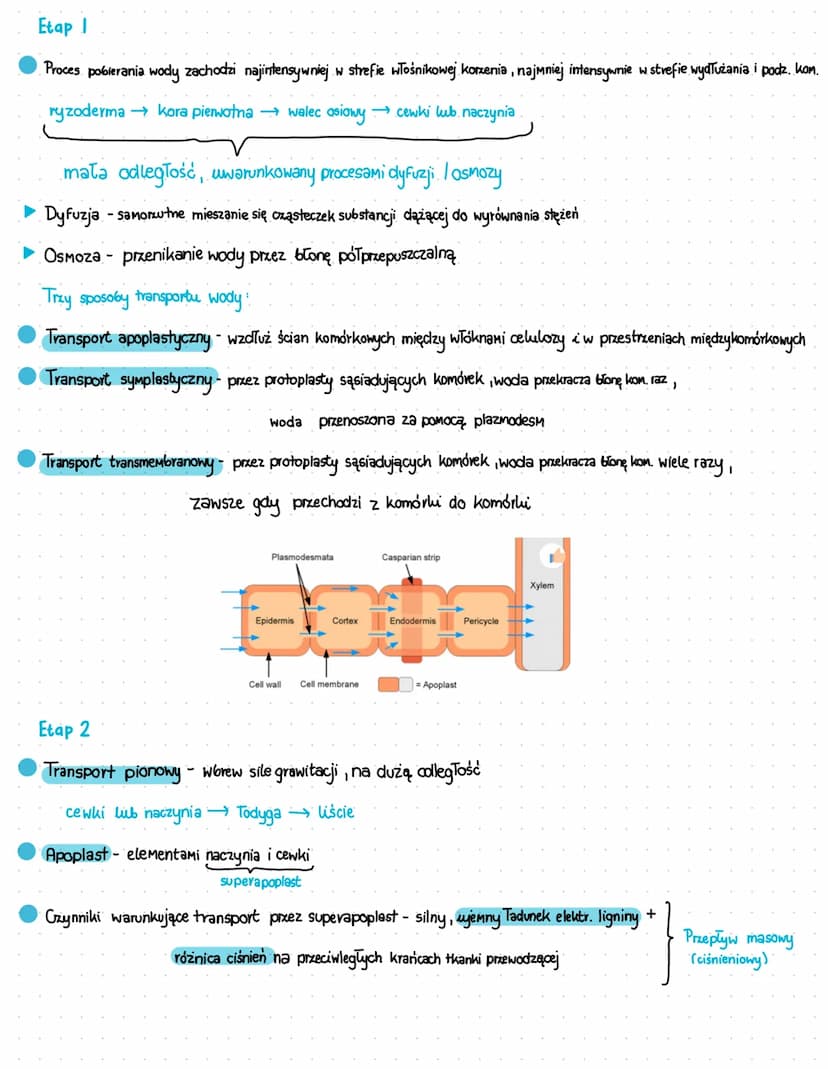 Etap 1
Proces pobierania wody zachodzi najintensywniej w strefie włośnikowej korzenia, najmniej intensywnie w strefie wydłużania i podz. kom.
ryzoderma → kora pierwotna → walec osiowy → cewki lub naczynia
mała odległość, uwarunkowany procesami dyfuzji / osmozy
Dyfuzja - samorzutne mieszanie się cząsteczek substancji dążącej do wyrównania stężeń
Osmoza - przenikanie wody przez błonę półprzepuszczalną
Trzy sposoby transportu wody:
Transport apoplastyczny - wzdłuż ścian komórkowych między włóknami celulozy i w przestrzeniach międzykomórkowych
Transport symplastyczny - przez protoplasty sąsiadujących komórek, woda przekracza błonę kom. raz,
woda przenoszona za pomocą plazmodesm
Transport transmembranowy - przez protoplasty sąsiadujących komórek, woda przekracza błonę kom. wiele razy,
zawsze gdy przechodzi z komórki do komórki
Plasmodesmata Casparian strip
Xylem
Epidermis Cortex Endodermis Pericycle
Cell wall Cell membrane = Apoplast
Etap 2
Transport pionowy - wbrew sile grawitacji, na dużą odległość
cewki lub naczynia → łodyga → liście
Apoplast - elementami naczynia i cewki
superapoplast
Czynniki warunkujące transport przez superapoplast - silny, ujemny ładunek elektr. ligniny +
różnica ciśnień na przeciwległych krańcach tkanki przewodzącej
Przepływ masowy
(ciśnieniowy)